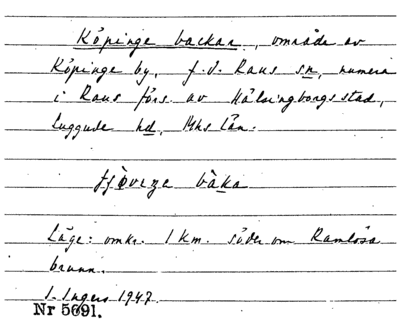 Köpinge backar, område av
Köpinge by, f.d. Raus sn, numera
i Raus förs. av Hälsingborgs stad,
Luggude hd, Mhs län.
bàka
Läge: omkr. 1 km. söder om Ramlösa
brunn.
I. Ingers 1947.
Nr 5691.